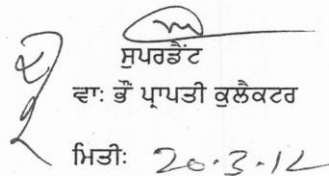 ਸੁਪਰਡੈਂਟ
ਵਾਃ ਭੌਂ ਪ੍ਰਾਪਤੀ ਕੁਲੈਕਟਰ
ਮਿਤੀਃ 20.3.12